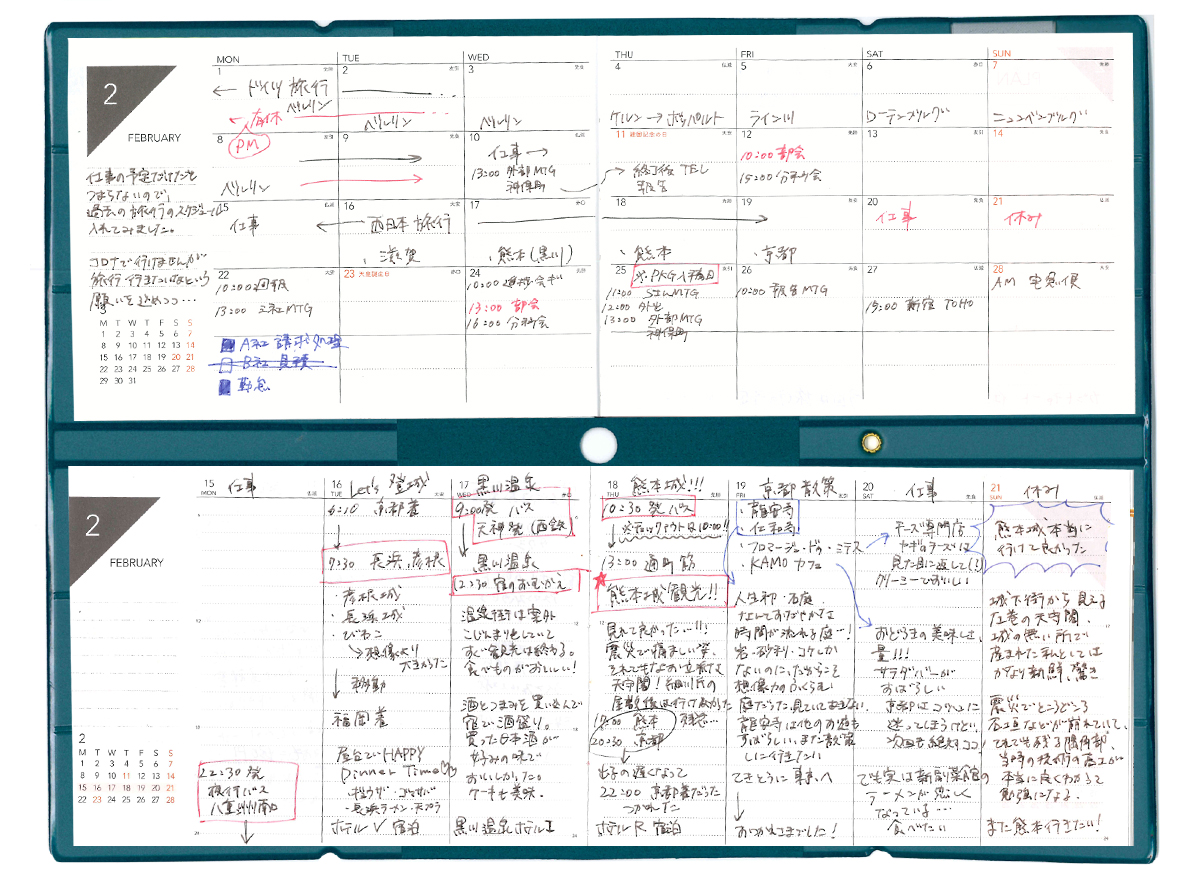 2
FEBRUARY
仕事の予定だけだと
つまらないので、
過去の旅行のスケジュール
入れてみました。
コロナで行けませんが
旅行行きたいなという
願いを込めつつ…
3
M T W T F S S
1 2 3 4 5 6 7
8 9 10 11 12 13 14
15 16 17 18 19 20 21
22 23 24 25 26 27 28
29 30 31
MON TUE WED THU FRI SAT SUN
1 2 3 4 5 6 7
← ドイツ旅行
ベルリン
ベルリン
ベルリン
ケルン→ボッパルト
ライン川
ローテンブルグ
ニュルンベルグ
8 9 10 11 建国記念の日 12 13 14
有休
PM
ベルリン
仕事→
13:00 外部MTG
神保町
終了後 TEL
報告
10:00 部会
15:00 分科会
15 16 17 18 19 20 21
仕事
← 西日本旅行
・滋賀
・熊本(黒川)
・熊本
・京都
仕事
休み
22 23 天皇誕生日 24 25 26 27 28
10:00 週報
13:00 三社MTG
13:00 部会
16:00 分科会
11:00 SさんMTG
12:00 外出
13:00 外部MTG
神保町
10:00 報告MTG
15:00 新宿 TOHO
AM 宅急便
A社 請求処理
B社 見積
勤怠
2
FEBRUARY
2
M T W T F S S
1 2 3 4 5 6 7
8 9 10 11 12 13 14
15 16 17 18 19 20 21
22 23 24 25 26 27 28
15 MON
仕事
22:30 発
夜行バス
八重洲南口
16 TUE
Let's 登城
6:10 京都着
7:30 長浜、彦根
・彦根城
・長浜城
・びわこ
→想像より
大きかった
移動
福岡着
屋台でHAPPY
Dinner Time♡
・長浜ラーメン・天プラ
ホテルV 宿泊
17 WED
黒川温泉
9:00発 バス
天神発(西鉄)
黒川温泉
12:30 宿のおむかえ
温泉街は案外
こじんまりしていて
すぐ観光は終わる。
食べものがおいしい!
酒とつまみを買い込んで
宿で酒盛り。
買った日本酒が
好みの味で
おいしかった。
ケーキも美味。
黒川温泉ホテルI
18 THU
熊本城!!!
10:30 発 バス
※チェックアウトは10:00!!
13:00 通町筋
熊本城観光!!
見れて良かった…!!
震災で痛ましい姿、
それでもなお立派な
天守閣!細川氏の
屋敷後は行けなかった
残念…
19:00 熊本
20:30 京都
出るの遅くなって
22:00 京都着だった
つかれた
ホテルR 宿泊
19 FRI
京都散策
・龍安寺
・仁和寺
・フロマージュ・ドゥ・ミテス
・KAMO カフェ
人生初・石庭。
なんておだやかな
時間が流れる庭!
岩・砂利・コケしか
ないのに、だからこそ
想像力がふくらむ
庭だった。見ていてあきない
龍安寺は他のお庭も
すばらしい。また散策
しに行きたい
てきとうに東京へ
おつかれさまでした!
20 SAT
仕事
チーズ専門店
ヤギのチーズは
見た目に反して(!)
クリーミーでおいしい
おどろきの美味しさ
量!!!
サラダバーが
すばらしい
京都はコッソリ
迷ってしまうけど、
次回も絶対ココ!
でも実は新福菜館の
ラーメンが恋しく
なっている…
食べたい
21 SUN
休み
熊本城本当に
行けて良かった
城下街から見える
圧巻の天守閣。
城の無い所で
産まれた私としては
かなり新鮮、驚き
震災でところどころ
石垣などが崩れていて、
それでも残る隅角部、
当時の技術の高さが
本当に良くわかって
勉強になる。
また熊本行きたい!